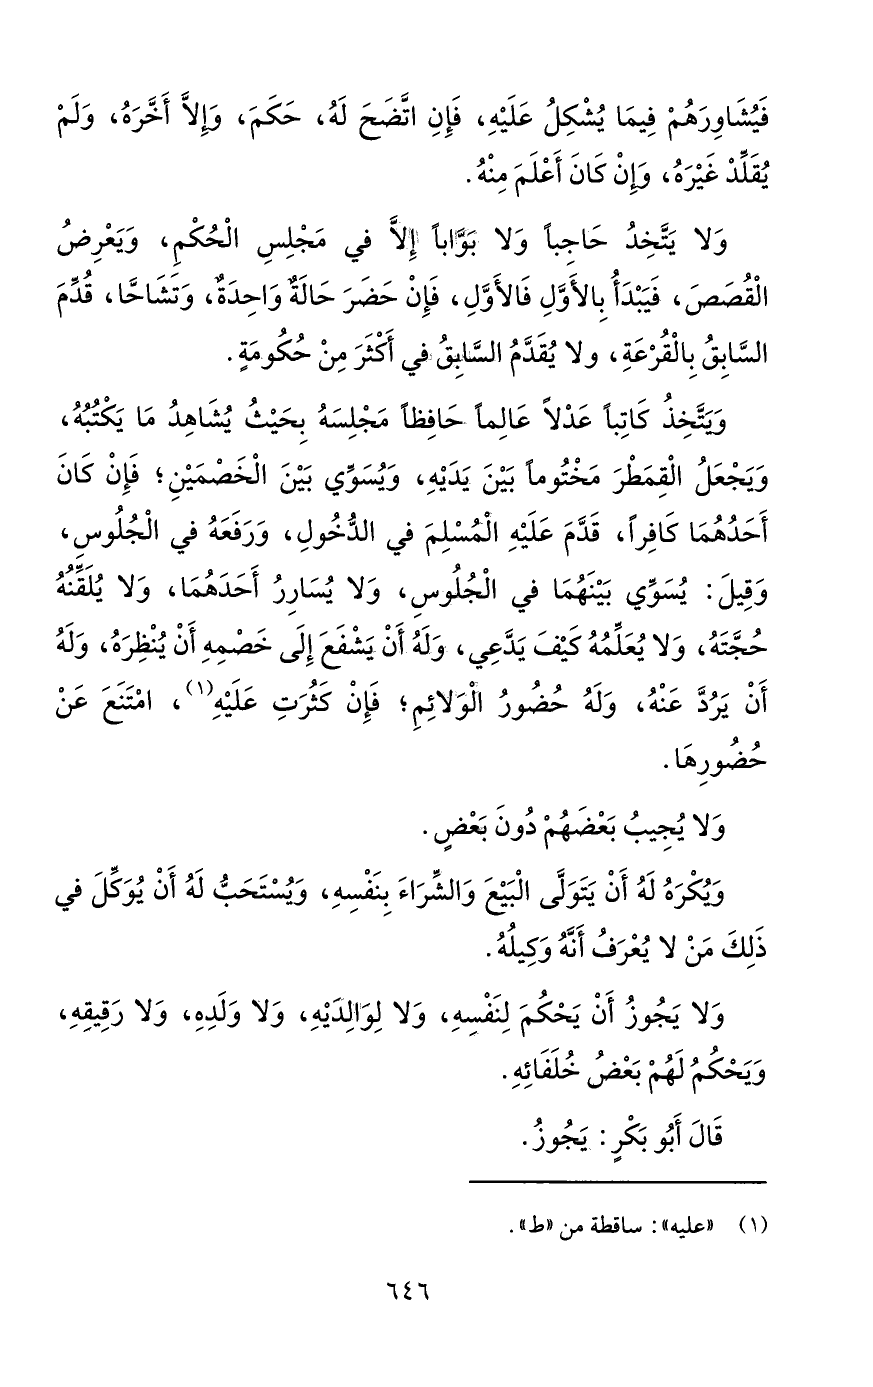 فَيُشَاوِرَهُمْ فِيمَا يُشْكِلُ عَلَيْهِ، فَإِنِ اتَّضَحَ لَهُ، حَكَمَ، وَإِلاَّ أَخَّرَهُ، وَلَمْ
يُقَلِّدْ غَيْرَهُ، وَإِنْ كَانَ أَعْلَمَ مِنْهُ.
وَلا يَتَّخِذُ حَاجِباً وَلا بَوَّاباً إِلاَّ في مَجْلِسِ الْحُكْمِ، وَيَعْرِضُ
الْقُصَصَ، فَيَبْدَأُ بِالأَوَّلِ فَالأَوَّلِ، فَإِنْ حَضَرَ حَالَةٌ وَاحِدَةٌ، وَتَشَاحَّا، قُدِّمَ
السَّابِقُ بِالْقُرْعَةِ، ولا يُقَدَّمُ السَّابِقُ في أَكْثَرَ مِنْ حُكُومَةٍ.
وَيَتَّخِذُ كَاتِباً عَدْلاً عَالِماً حَافِظاً مَجْلِسَهُ بِحَيْثُ يُشَاهِدُ مَا يَكْتُبُهُ،
وَيَجْعَلُ الْقِمَطْرَ مَخْتُوماً بَيْنَ يَدَيْهِ، وَيُسَوِّي بَيْنَ الْخَصْمَيْنِ؛ فَإِنْ كَانَ
أَحَدُهُمَا كَافِراً، قَدَّمَ عَلَيْهِ الْمُسْلِمَ في الدُّخُولِ، وَرَفَعَهُ في الْجُلُوسِ،
وَقِيلَ: يُسَوِّي بَيْنَهُمَا في الْجُلُوسِ، وَلا يُسَارِرُ أَحَدَهُمَا، وَلا يُلَقِّنُهُ
حُجَّتَهُ، وَلا يُعَلِّمُهُ كَيْفَ يَدَّعِي، وَلَهُ أَنْ يَشْفَعَ إِلَى خَصْمِهِ أَنْ يُنْظِرَهُ، وَلَهُ
أَنْ يَرُدَّ عَنْهُ، وَلَهُ حُضُورُ الْوَلائِمِ؛ فَإِنْ كَثُرَتِ عَلَيْهِ(١)، امْتَنَعَ عَنْ
حُضُورِهَا.
وَلا يُجِيبُ بَعْضَهُمْ دُونَ بَعْضٍ.
وَيُكْرَهُ لَهُ أَنْ يَتَوَلَّى الْبَيْعَ وَالشِّرَاءَ بِنَفْسِهِ، وَيُسْتَحَبُّ لَهُ أَنْ يُوَكِّلَ في
ذَلِكَ مَنْ لا يُعْرَفُ أَنَّهُ وَكِيلُهُ.
وَلا يَجُوزُ أَنْ يَحْكُمَ لِنَفْسِهِ، وَلا لِوَالِدَيْهِ، وَلا وَلَدِهِ، وَلا رَقِيقِهِ،
وَيَحْكُمُ لَهُمْ بَعْضُ خُلَفَائِهِ.
قَالَ أَبُو بَكْرٍ: يَجُوزُ.
(١) «عليه»: ساقطة من «ط».
٦٤٦